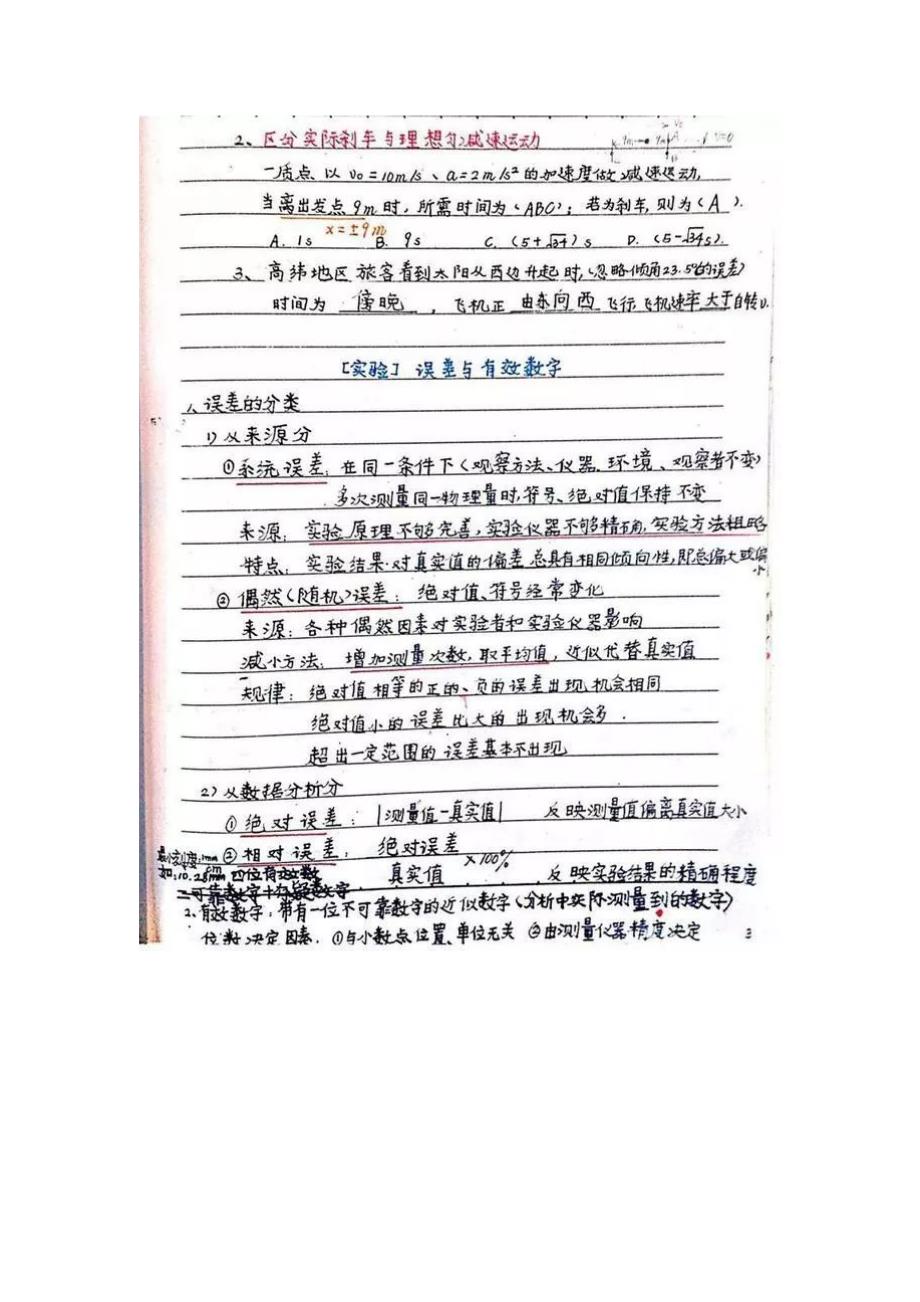 2、区分实际刹车与理想匀减速运动
一质点以 v₀=10m/s、a=2m/s²的加速度做减速运动,
当离出发点9m时,所需时间为(ABC); 若为刹车,则为(A).
x=±9m
A. 1s B. 9s C. (5+√34)s D. (5-√34s).
3、高纬地区旅客看到太阳从西边升起时,(忽略倾角23.5°的误差)
时间为 傍晚 , 飞机正 由东向西 飞行,飞机速率大于自转v.
[实验] 误差与有效数字
1、误差的分类
1)从来源分
①系统误差: 在同一条件下(观察方法、仪器、环境、观察者不变)
多次测量同一物理量时,符号、绝对值保持不变
来源: 实验原理不够完善,实验仪器不够精确,实验方法粗略
特点: 实验结果对真实值的偏差总具有相同倾向性,即总偏大或偏小
②偶然(随机)误差: 绝对值、符号经常变化
来源: 各种偶然因素对实验者和实验仪器影响
减小方法: 增加测量次数,取平均值,近似代替真实值
规律: 绝对值相等的正的、负的误差出现机会相同
绝对值小的误差比大的出现机会多.
超出一定范围的误差基本不出现
2)从数据分析分
①绝对误差: |测量值-真实值| 反映测量值偏离真实值大小
②相对误差: 绝对误差/真实值 ×100%, 反映实验结果的精确程度
最小刻度:1mm
如:10.28 四位有效数
=可靠数字+存疑数字
2、有效数字: 带有一位不可靠数字的近似数字(分析中实际测量到的数字)
位数决定因素. ①与小数点位置、单位无关 ②由测量仪器精度决定
3